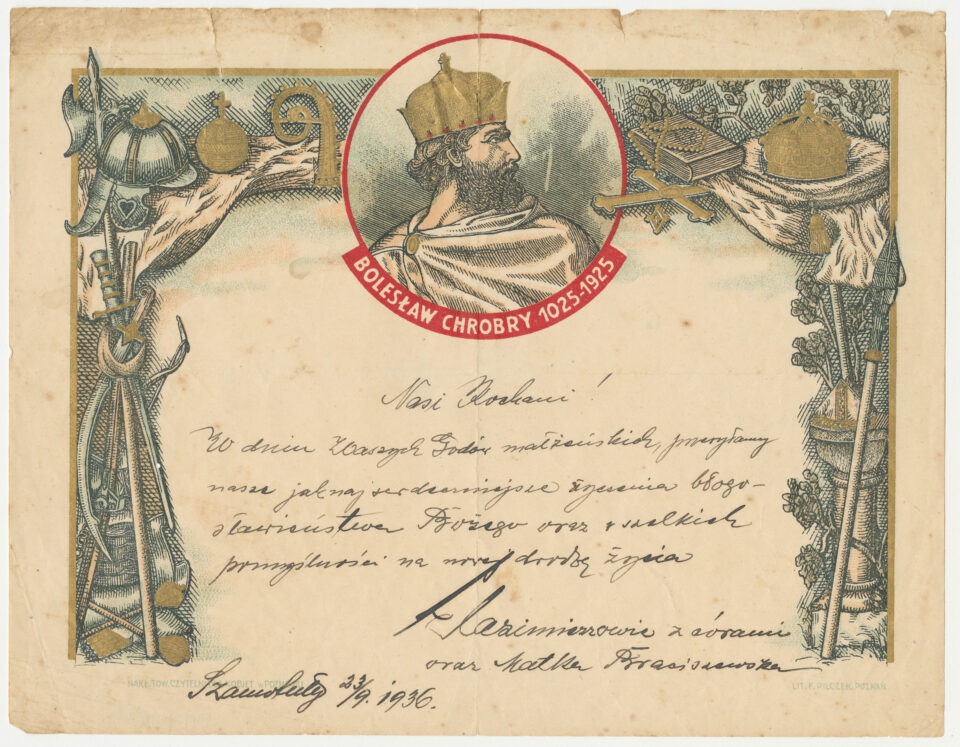 BOLESŁAW CHROBRY 1025-1925
Nasi Kochani!
W dniu Waszych Godów małżeńskich, przesyłamy
nasze jaknajserdeczniejsze życzenia błogo-
sławieństwa Bożego oraz wszelkich
pomyślności na nowej drodze życia
Kazimierzowie z córami
oraz Matka Braciszewska
Szamotuły 23/9. 1936.
NAKŁ. TOW. CZYTELNI KOBIET w POZNANIU
LIT. F. PILCZEK, POZNAŃ